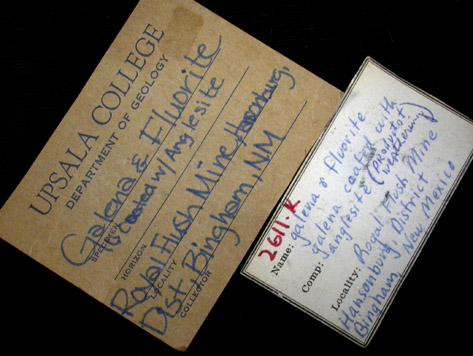 UPSALA COLLEGE
DEPARTMENT OF GEOLOGY
Galena & Fluorite
SPECIMEN
is Coated w/ Anglesite
HORIZON
Royal Flush Mine, Hansonburg,
LOCALITY
Dist. Bingham, NM
COLLECTOR
2611-K
Name: galena & fluorite
galena coated with
Comp: anglesite (product of weathering)
Locality: Royal Flush Mine
Hansonburg, District
Bingham, New Mexico